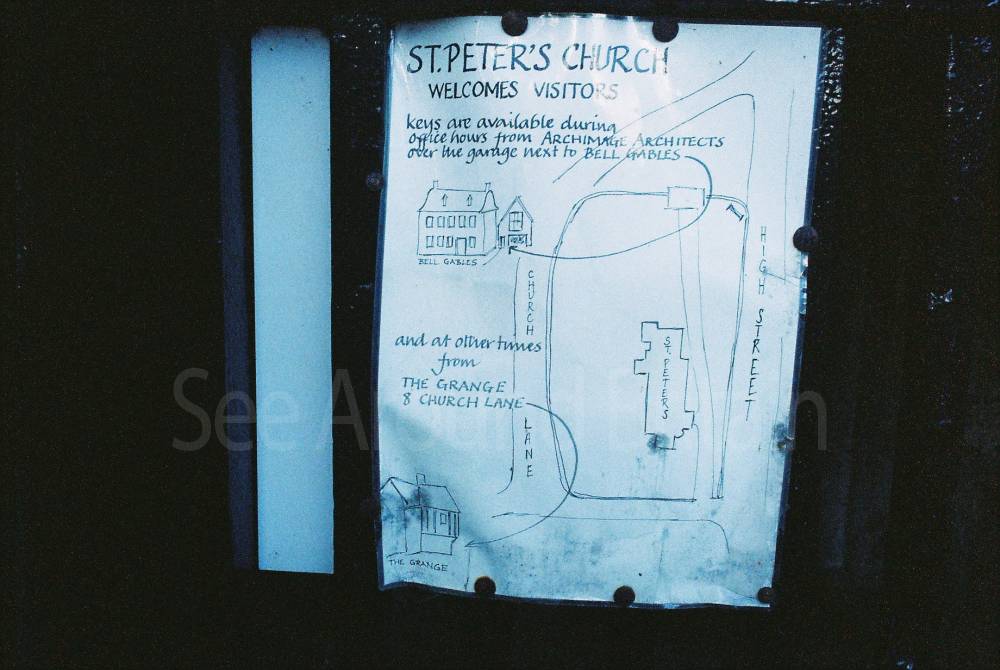 ST. PETER'S CHURCH
WELCOMES VISITORS
keys are available during
office hours from ARCHIMAGE ARCHITECTS
over the garage next to BELL GABLES
BELL GABLES
CHURCH
HIGH STREET
and at other times
from
THE GRANGE
8 CHURCH LANE
ST. PETERS
LANE
THE GRANGE
See Around Britain